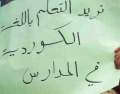 نريد التعلم باللغة
الكوردية
في المدارس